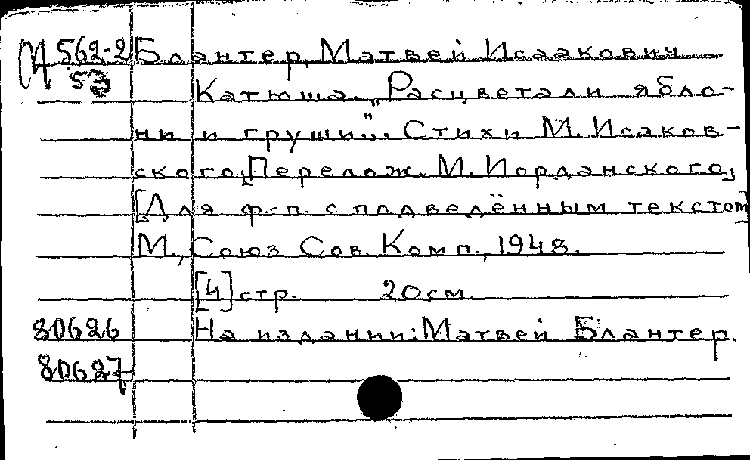 М 562-2 Блантер, Матвей Исаакович
53
Катюша. „Расцветали ябло-
ни и груши”... Стихи М. Исаков-
ского, Перелож. М. Иорданского,
[Для ф.-п. с подведённым текстом]
М., Союз Сов. Комп., 1948.
[4] стр. 20 см.
80626 На издании: Матвей Блантер.
80627